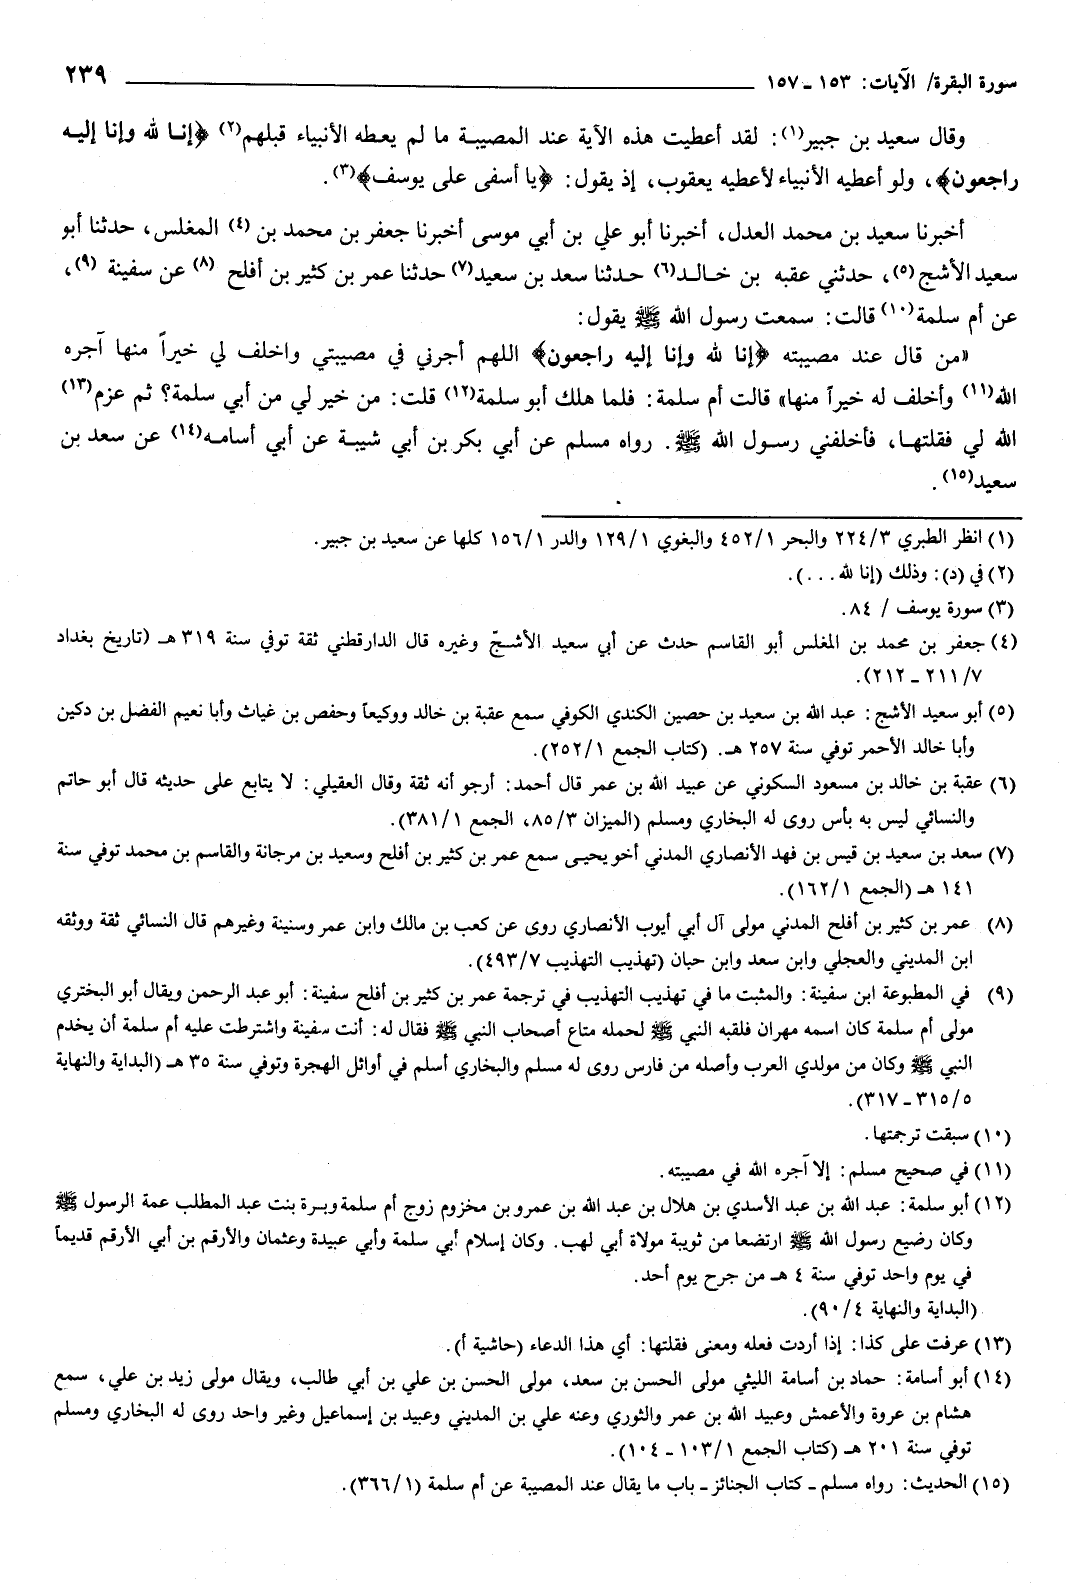 سورة البقرة/ الآيات: ١٥٣ ـ ١٥٧ ٢٣٩
وقال سعيد بن جبير(١): لقد أعطيت هذه الآية عند المصيبة ما لم يعطه الأنبياء قبلهم(٢) ﴿إنا لله وإنا إليه
راجعون﴾، ولو أعطيه الأنبياء لأعطيه يعقوب، إذ يقول: ﴿يا أسفى على يوسف﴾(٣).
أخبرنا سعيد بن محمد العدل، أخبرنا أبو علي بن أبي موسى أخبرنا جعفر بن محمد بن (٤) المغلس، حدثنا أبو
سعيد الأشج(٥)، حدثني عقبه بن خالد(٦) حدثنا سعد بن سعيد(٧) حدثنا عمر بن كثير بن أفلح (٨) عن سفينة (٩)،
عن أم سلمة(١٠) قالت: سمعت رسول الله ﷺ يقول:
«من قال عند مصيبته ﴿إنا لله وإنا إليه راجعون﴾ اللهم أجرني في مصيبتي واخلف لي خيراً منها آجره
الله(١١) وأخلف له خيراً منها» قالت أم سلمة: فلما هلك أبو سلمة(١٢) قلت: من خير لي من أبي سلمة؟ ثم عزم(١٣)
الله لي فقلتها، فأخلفني رسول الله ﷺ. رواه مسلم عن أبي بكر بن أبي شيبة عن أبي أسامه(١٤) عن سعد بن
سعيد(١٥).
(١) انظر الطبري ٢٢٤/٣ والبحر ٤٥٢/١ والبغوي ١٢٩/١ والدر ١٥٦/١ كلها عن سعيد بن جبير.
(٢) في (د): وذلك (إنا لله ...).
(٣) سورة يوسف / ٨٤.
(٤) جعفر بن محمد بن المغلس أبو القاسم حدث عن أبي سعيد الأشجّ وغيره قال الدارقطني ثقة توفي سنة ٣١٩ هـ (تاريخ بغداد
٢١١/٧ ـ ٢١٢).
(٥) أبو سعيد الأشج: عبد الله بن سعيد بن حصين الكندي الكوفي سمع عقبة بن خالد ووكيعاً وحفص بن غياث وأبا نعيم الفضل بن دكين
وأبا خالد الأحمر توفي سنة ٢٥٧ هـ. (كتاب الجمع ٢٥٢/١).
(٦) عقبة بن خالد بن مسعود السكوني عن عبيد الله بن عمر قال أحمد: أرجو أنه ثقة وقال العقيلي: لا يتابع على حديثه قال أبو حاتم
والنسائي ليس به بأس روى له البخاري ومسلم (الميزان ٨٥/٣، الجمع ٣٨١/١).
(٧) سعد بن سعيد بن قيس بن فهد الأنصاري المدني أخو يحيى سمع عمر بن كثير بن أفلح وسعيد بن مرجانة والقاسم بن محمد توفي سنة
١٤١ هـ (الجمع ١٦٢/١).
(٨) عمر بن كثير بن أفلح المدني مولى آل أبي أيوب الأنصاري روى عن كعب بن مالك وابن عمر وسنينة وغيرهم قال النسائي ثقة ووثقه
ابن المديني والعجلي وابن سعد وابن حبان (تهذيب التهذيب ٤٩٣/٧).
(٩) في المطبوعة ابن سفينة: والمثبت ما في تهذيب التهذيب في ترجمة عمر بن كثير بن أفلح سفينة: أبو عبد الرحمن ويقال أبو البختري
مولى أم سلمة كان اسمه مهران فلقبه النبي ﷺ لحمله متاع أصحاب النبي ﷺ فقال له: أنت سفينة واشترطت عليه أم سلمة أن يخدم
النبي ﷺ وكان من مولدي العرب وأصله من فارس روى له مسلم والبخاري أسلم في أوائل الهجرة وتوفي سنة ٣٥ هـ (البداية والنهاية
٣١٥/٥ ـ ٣١٧).
(١٠) سبقت ترجمتها.
(١١) في صحيح مسلم: إلا آجره الله في مصيبته.
(١٢) أبو سلمة: عبد الله بن عبد الأسدي بن هلال بن عبد الله بن عمرو بن مخزوم زوج أم سلمة وبرة بنت عبد المطلب عمة الرسول ﷺ
وكان رضيع رسول الله ﷺ ارتضعا من ثويبة مولاة أبي لهب. وكان إسلام أبي سلمة وأبي عبيدة وعثمان والأرقم بن أبي الأرقم قديماً
في يوم واحد توفي سنة ٤ هـ من جرح يوم أحد.
(البداية والنهاية ٩٠/٤).
(١٣) عرفت على كذا: إذا أردت فعله ومعنى فقلتها: أي هذا الدعاء (حاشية أ).
(١٤) أبو أسامة: حماد بن أسامة الليثي مولى الحسن بن سعد، مولى الحسن بن علي بن أبي طالب، ويقال مولى زيد بن علي، سمع
هشام بن عروة والأعمش وعبيد الله بن عمر والثوري وعنه علي بن المديني وعبيد بن إسماعيل وغير واحد روى له البخاري ومسلم
توفي سنة ٢٠١ هـ (كتاب الجمع ١٠٣/١ ـ ١٠٤).
(١٥) الحديث: رواه مسلم ـ كتاب الجنائز ـ باب ما يقال عند المصيبة عن أم سلمة (٣٦٦/١).